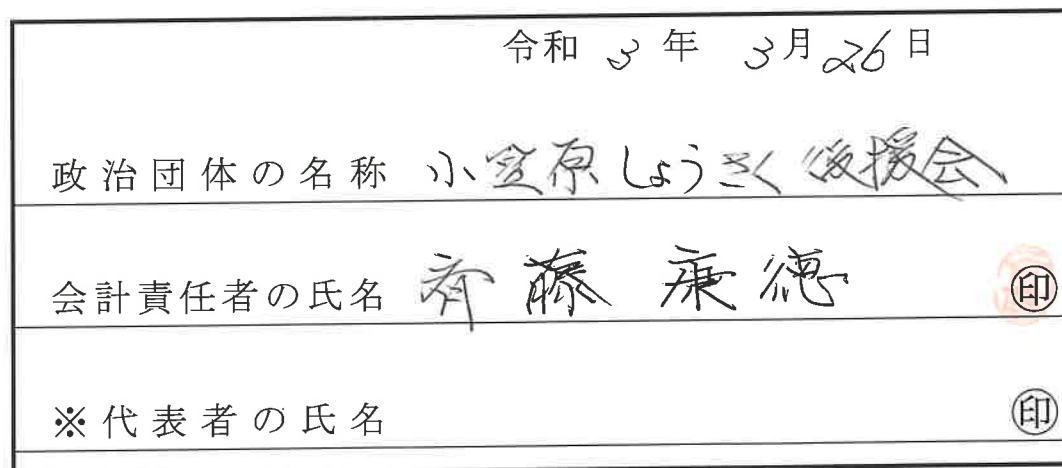 令和 3 年 3月26日
政治団体の名称 小笠原しょうさく後援会
会計責任者の氏名 斉藤 康徳 ㊞
※代表者の氏名 ㊞